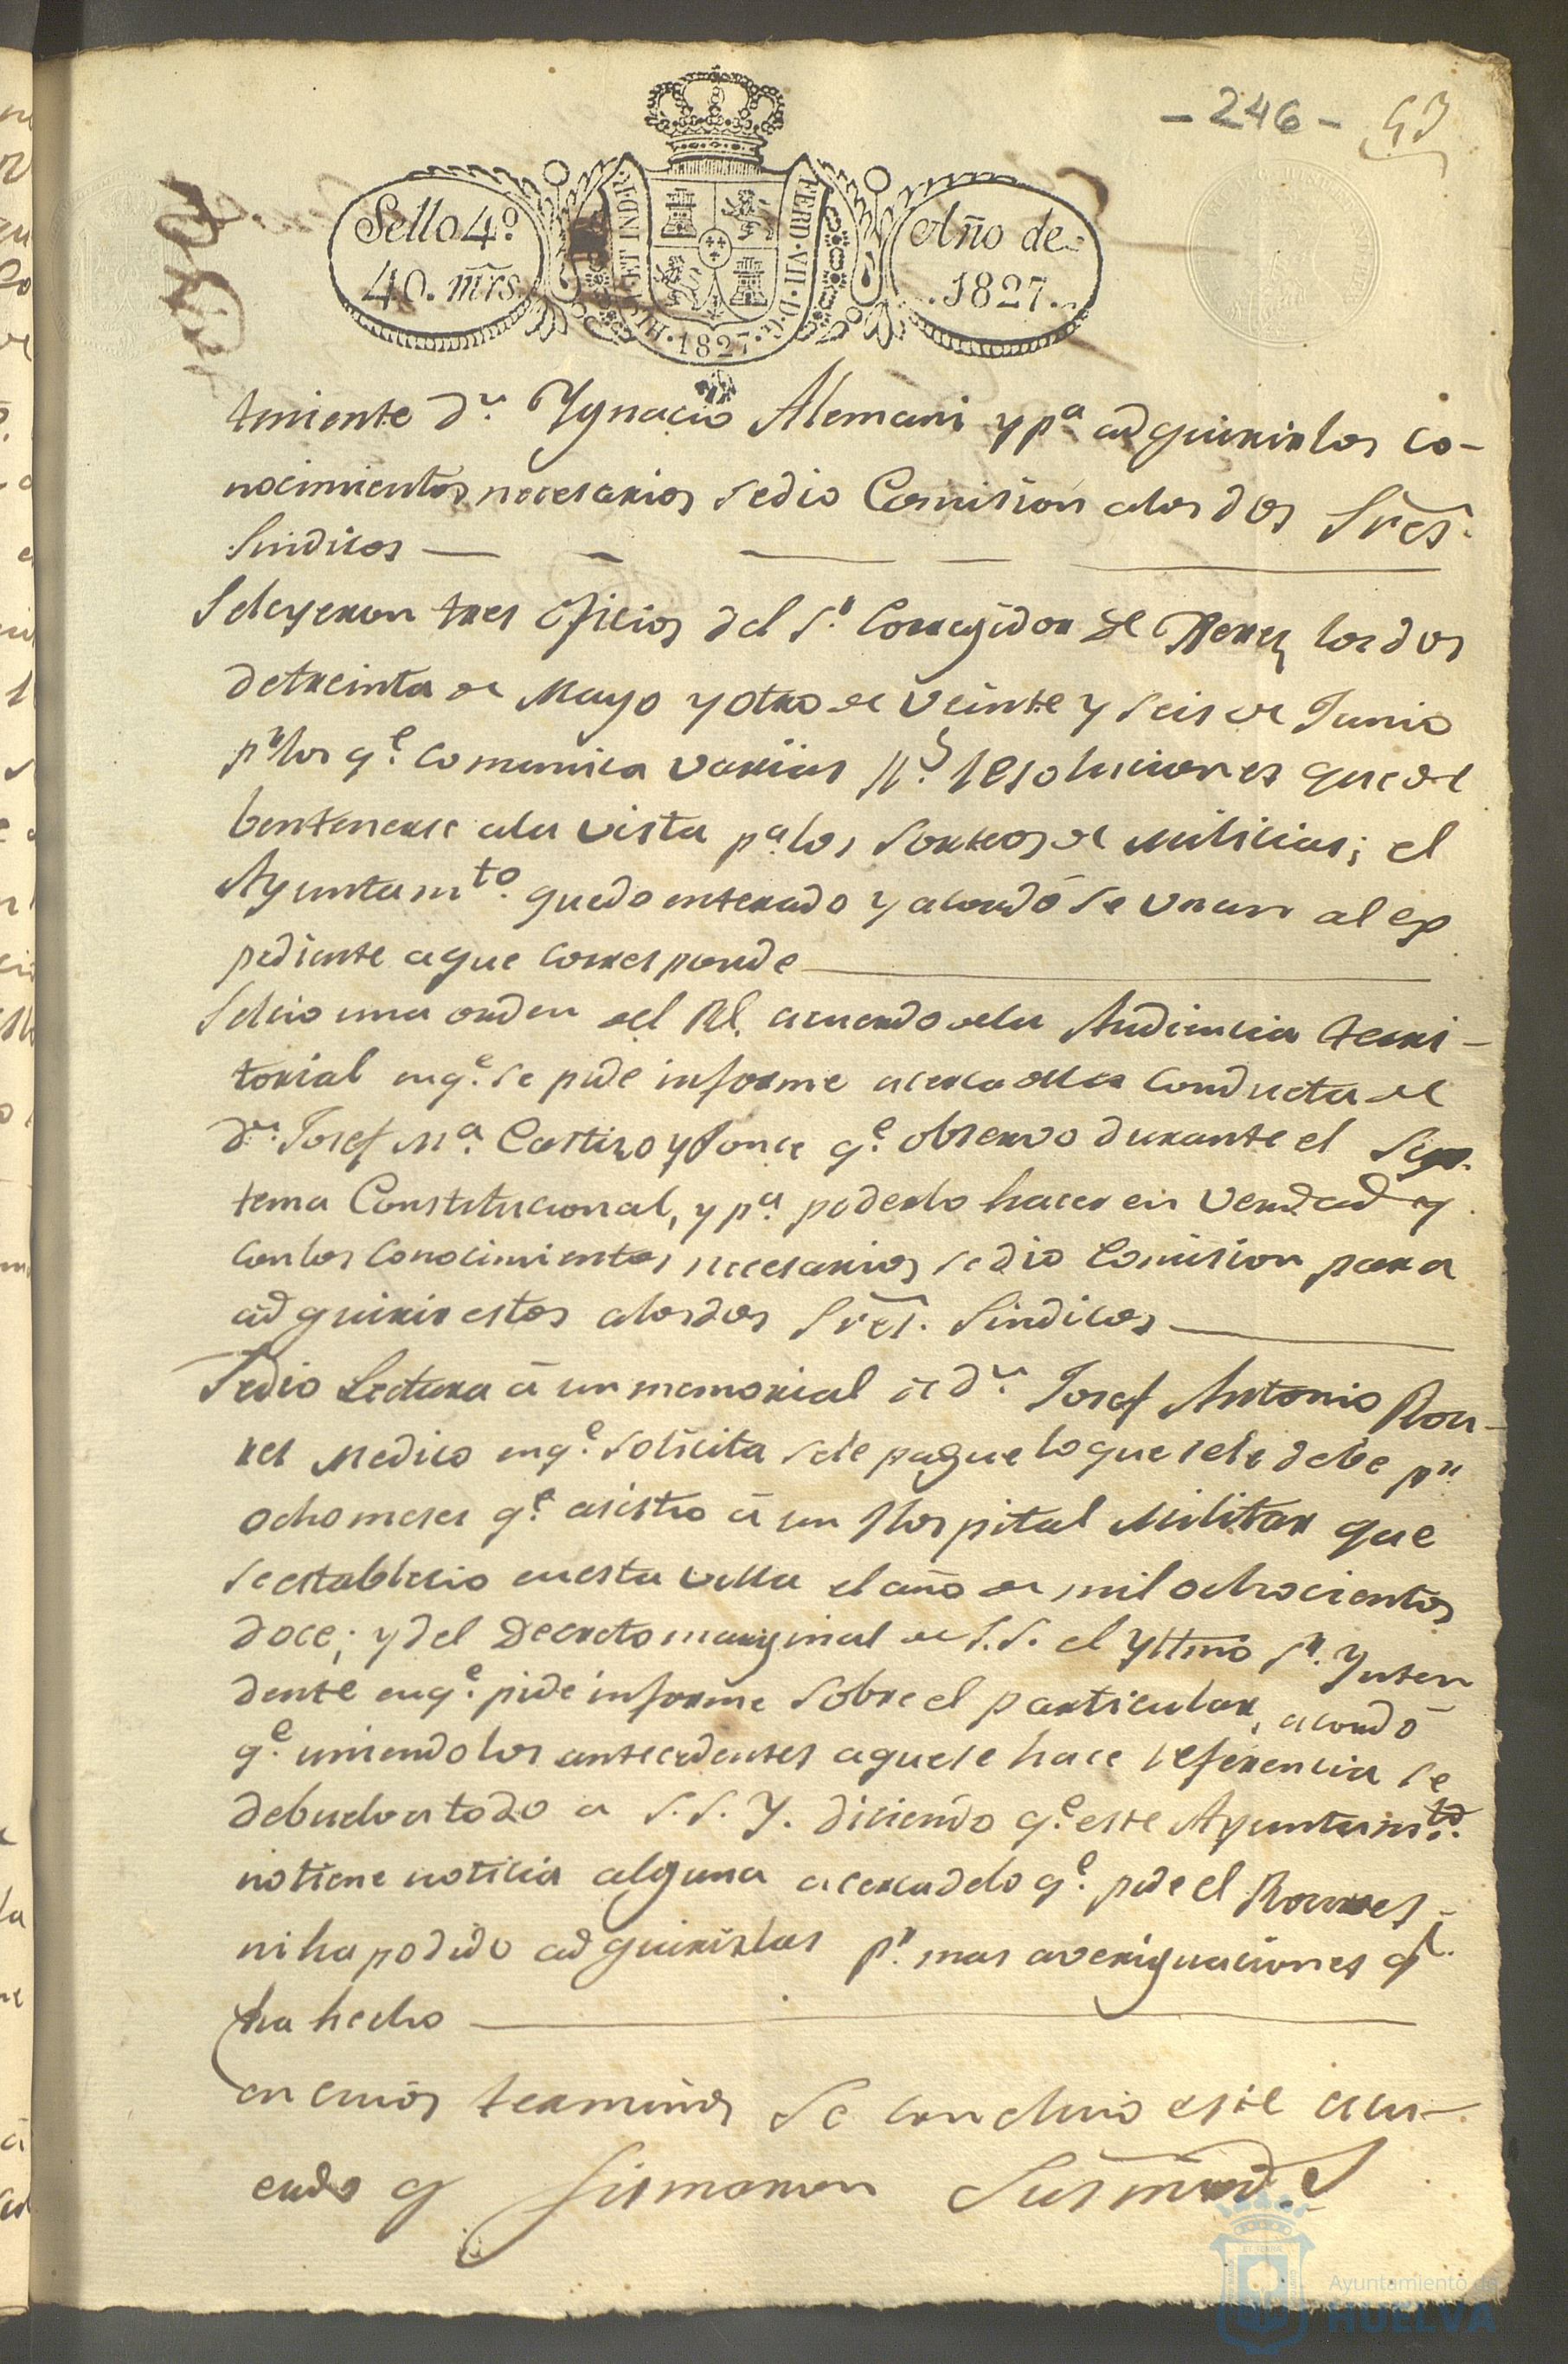 - 246 - 43
Sello 4º
40. mrs.
Año de
1827.
HISP. ET IND. R. FERD. VII. D. G. 1827.
teniente dn. Ygnacio Alemani y pa. adquirir los co-
nocimientos necesarios sedio Comision alos dos Sres.
Sindicos
Seleyeron tres oficios del Sr. Corregidor de Xerez los dos
detreinta de Mayo y otro de veinte y seis de Junio
pr. los qe. comunica varias Rs. resoluciones que de
bentenerse ala vista pa. los sorteos de Milicias; el
Ayuntamto. quedo enterado y acordó se unan al ex
pediente aque corresponde
Seleio una orden del Rl. acuerdo dela Audiencia terri-
torial en qe. se pide informe acerca dela conducta de
dn. Josef Ma. Castizo y Ponce qe. observo durante el Sys-
tema Constitucional, y pa. poderlo hacer en verdad y
conlos conocimientos necesarios sedio Comision para
adquirir estos alos dos Sres. Sindicos
Sedio Lectura á un memorial de dn. Josef Antonio Rou-
res Medico en qe. solicita sele pague loque sele debe pr.
ocho meses qe. asistio á un Hospital Militar que
se establecio enesta villa el año de mil ochocientos
doce; y del Decreto marginal de S.S. el Yltmo Sr. Ynten
dente en qe. pide informe sobre el particular, acordó
qe. uniendo los antecedentes aquese hace referencia se
debuelva todo a S.S.Y. diciendo qe. este Ayuntamto.
notiene noticia alguna acerca delo qe. pide el Roures,
niha podido adquirirlas pr. mas averiguaciones qe.
ha hecho
en cuios terminos se concluio este acu-
erdo q firmaron Sus mrds.
Ayuntamiento de
HUELVA